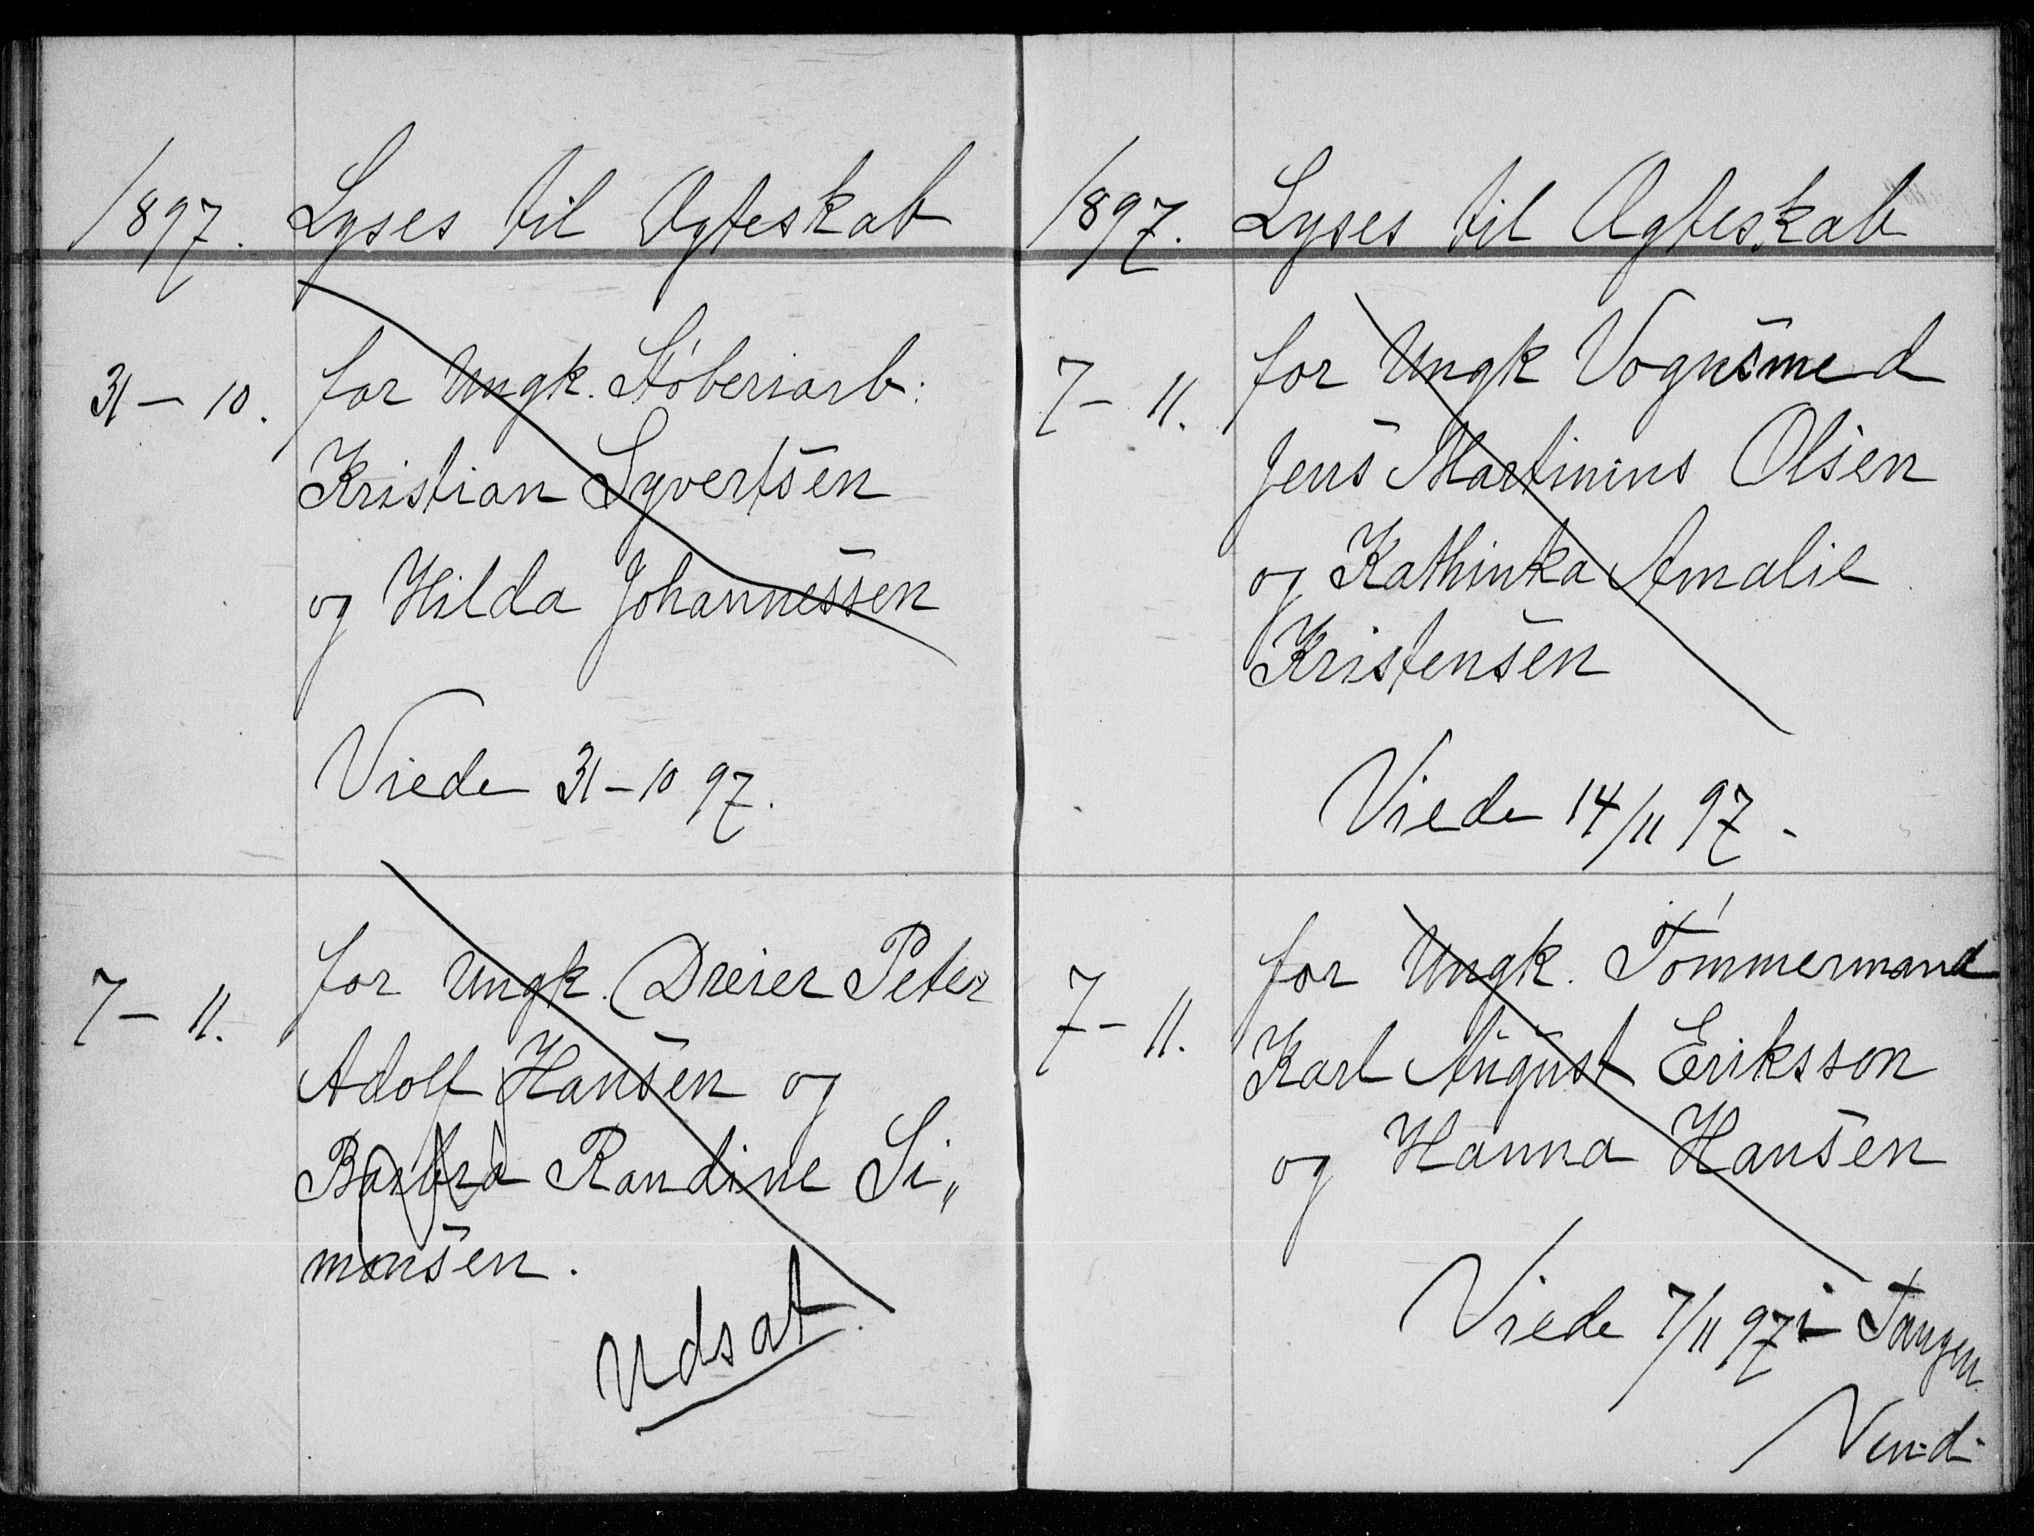 1897. Lyses til Ægteskab
31 – 10. for Ungk. Støberiarb:
Kristian Syvertsen
og Hilda Johannessen
Viede 31–10 97.
7 – 11. for Ungk. Dreier Peter
Adolf Hansen og
Barbra Randine Si„
monsen.
Udsat.
1897. Lyses til Ægteskab
7 – 11. for Ungk Vognsmed
Jens Martinius Olsen
og Kathinka Amalie
Kristensen
Viede 14/11 97 -
7 – 11. for Ungk. Tømmermand
Karl August Eriksson
og Hanna Hansen
Viede 7/11 97 i Tangen
Vend